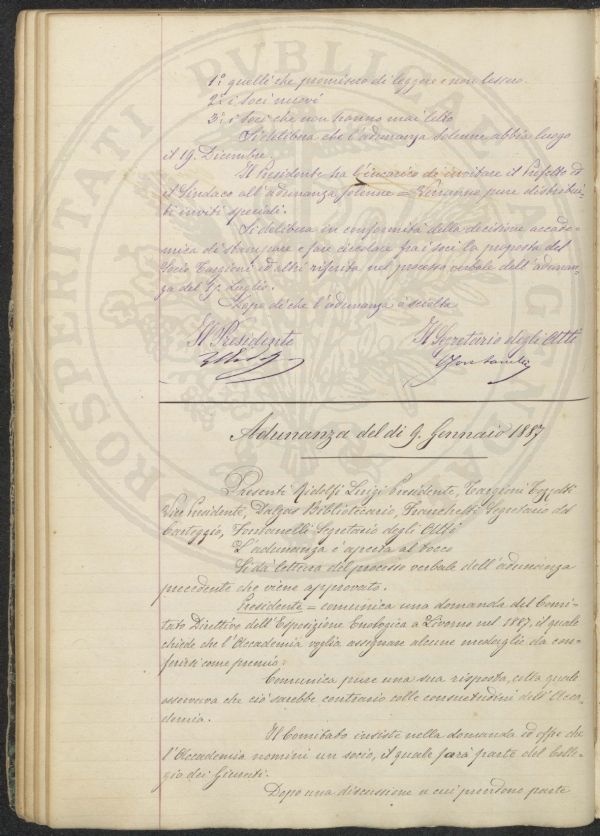 1º quelli che promisero di leggere e non lessero.
2º i soci nuovi
3º i soci che non hanno mai letto
Si delibera che l'adunanza solenne abbia luogo
il 19. Dicembre.
Il Presidente ha l'incarico di invitare il Prefetto ed
il Sindaco all'adunanza solenne = Verranno pure distribui-
ti inviti speciali.
Si delibera in conformità della decisione accade-
mica di stampare e fare circolare fra i soci la proposta del
Socio Targioni ed altri riferita nel processo verbale dell'adunan-
za del Luglio.
Dopo di che l'adunanza è sciolta
Il Presidente
Il Segretario degli Atti
Adunanza del dì 9. Gennaio 1887
Presenti Ridolfi Luigi Presidente, Targioni Tozzetti
Vice Presidente, Dalgas Bibliotecario, Franchetti Segretario del
Carteggio, Fontanelli Segretario degli Atti
L'adunanza è aperta al tocco
Si dà lettura del processo verbale dell'adunanza
precedente che viene approvato.
Presidente = comunica una domanda del Comi-
tato Direttivo dell'Esposizione Enologica a Livorno nel 1887, il quale
chiede che l'Accademia voglia assegnare alcune medaglie da con-
ferirsi come premio.
Comunica pure una sua risposta, colla quale
osservava che ciò sarebbe contrario alle consuetudini dell'Acca-
demia.
Il Comitato insiste nella domanda ed offre che
l'Accademia nomini un socio, il quale farà parte del Colle-
gio dei Giurati.
Dopo una discussione a cui prendono parte